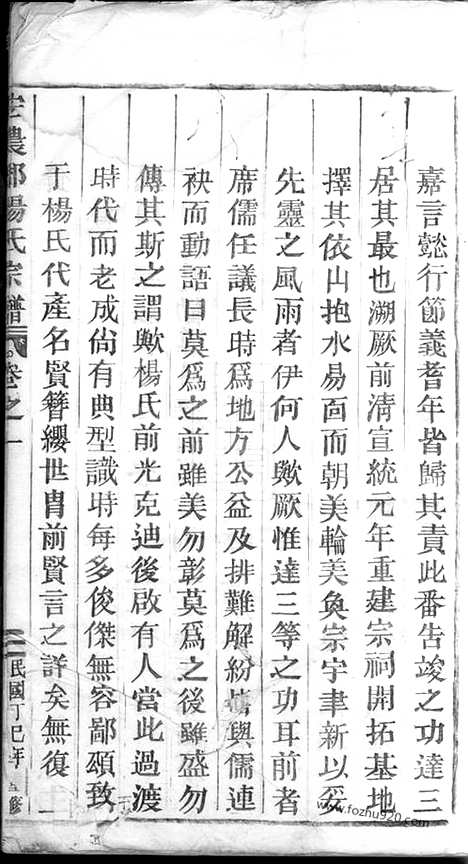 嘉言懿行節義耆年皆歸其責此番告竣之功達三
居其最也溯厥前清宣統元年重建宗祠開拓基地
擇其依山抱水易靣而朝美輪美奐宗宇聿新以妥
先靈之風雨者伊何人歟厥惟達三等之功耳前者
席儒任議長時爲地方公益及排難解紛嘗與儒連
袂而動語曰莫爲之前雖美勿彰莫爲之後雖盛勿
傳其斯之謂歟楊氏前光克迪後啟有人當此過渡
時代而老成尙有典型識時每多俊傑無容鄙頌致
于楊氏代產名賢簪纓世胄前賢言之詳矣無復
農郡楊氏宗譜 卷之一 民國丁巳年 修
www.fozhu920.com